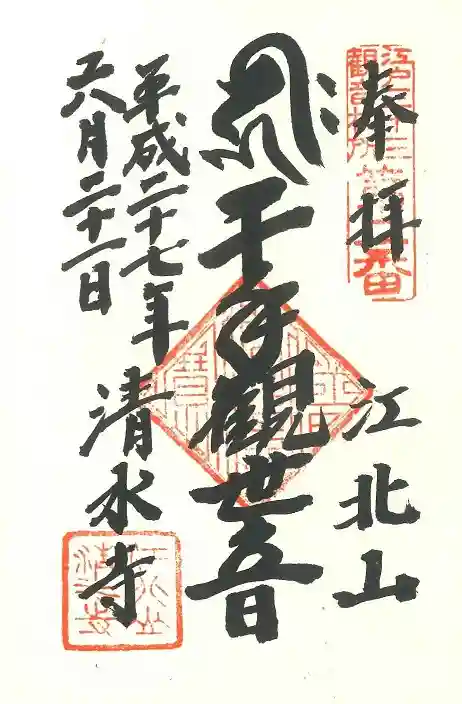 奉拝
江戸三十三
観音札所
第二番
江北山
千手觀世音
平成二十七年
六月二十一日
清水寺
江北山
清水寺